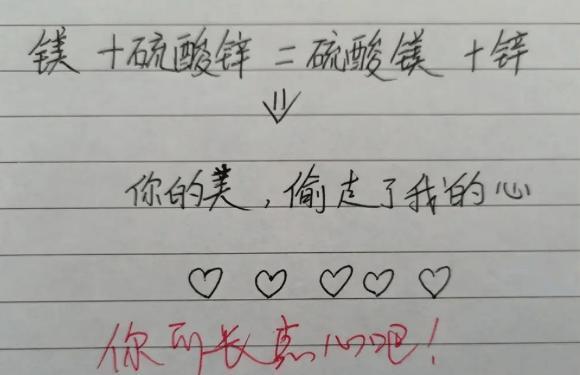 镁+硫酸锌=硫酸镁+锌
你的美,偷走了我的心
你可长点心吧!